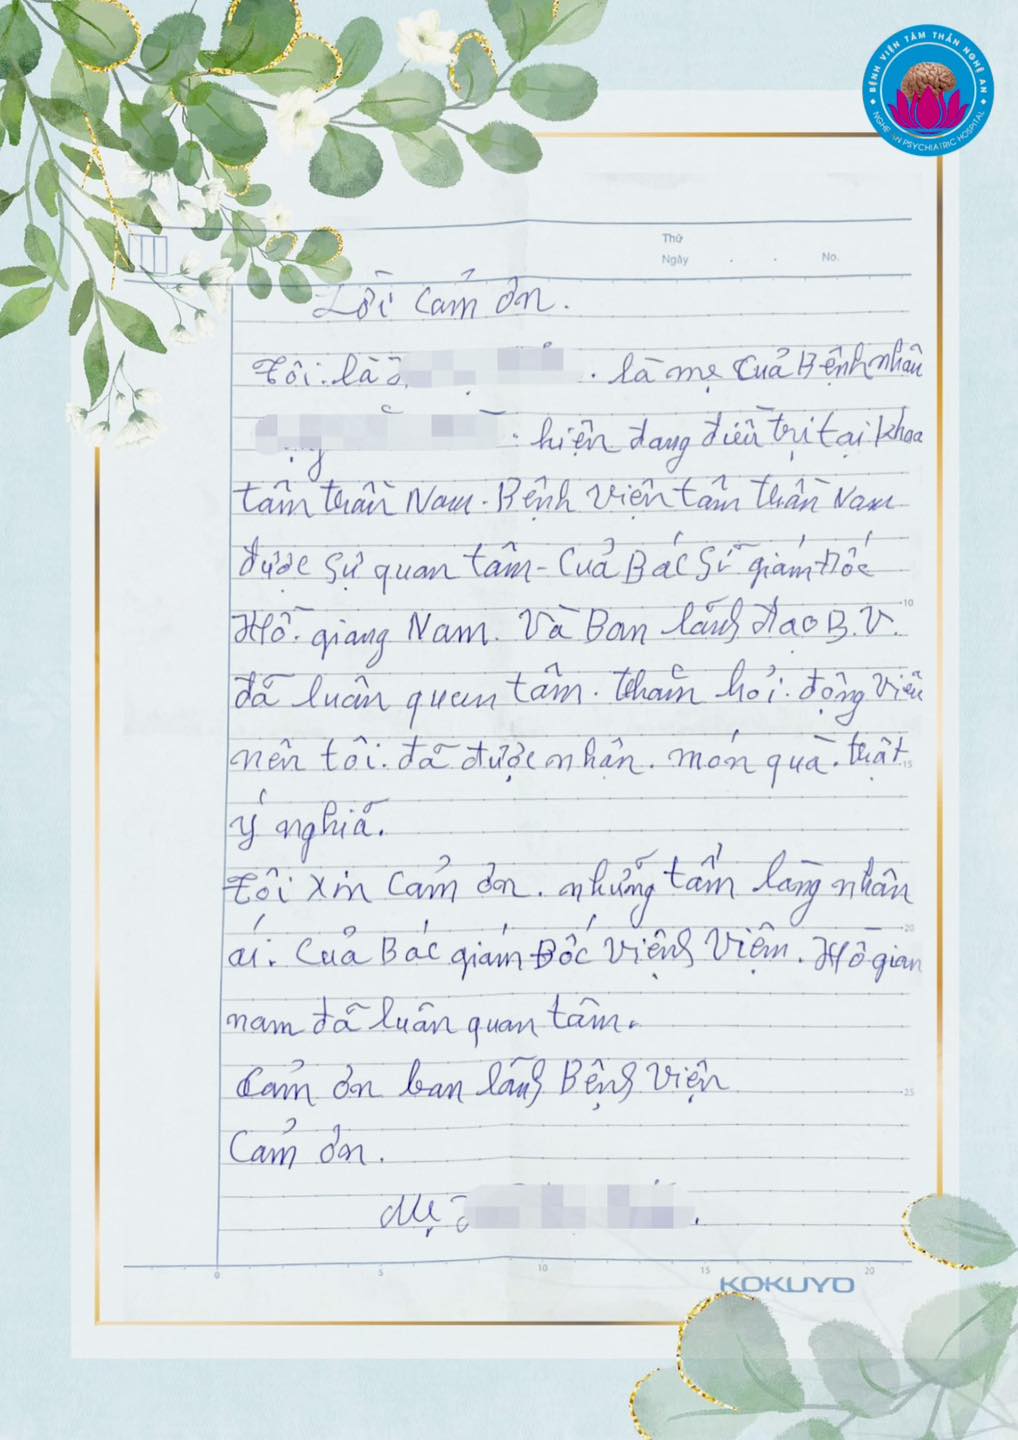 BỆNH VIỆN TÂM THẦN NGHỆ AN
NGHE AN PSYCHIATRIC HOSPITAL
Thứ
Ngày . . No.
Lời Cảm ơn.
Tôi. là . là mẹ Của Bệnh nhân
. hiện đang điều trị tại khoa
tâm thần Nam. Bệnh Viện tâm thần Nam
được Sự quan tâm - Của Bác Sĩ giám Đốc
Hồ. giang Nam. Và Ban lãnh đạo B.V.
đã luân quan tâm. thăm hỏi. động Viên
nên tôi. đã được nhận. món quà. thật
ý nghĩa.
Tôi xin Cảm ơn. những tấm lòng nhân
ái. Của Bác giám Đốc Viện. Hồ gian
nam đã luân quan tâm.
Cảm ơn ban lãnh Bệnh Viện
Cảm ơn.
Mẹ .
0 5 10 15 20
10
15
20
25
KOKUYO